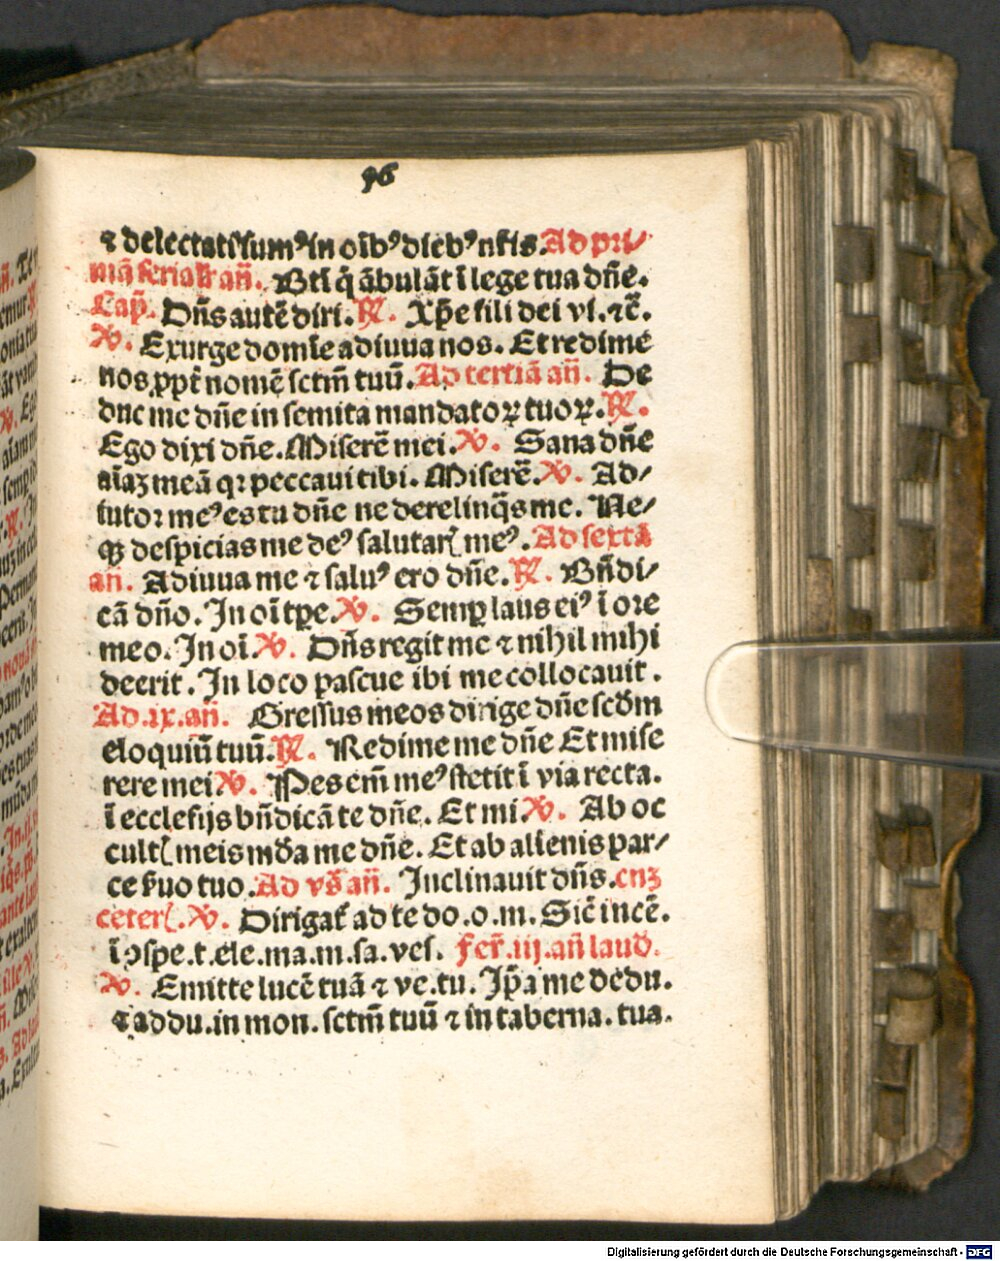 96
⁊ delectati sumꝰ in oīb⁹ dieb⁹ nr̄is. Ad pri⸗
mā ferialē an̄. Bt̄i q̄ ābulāt ī lege tua dn̄e.
Cap̄. Dn̄s autē diri. ℟. Xp̄e fili dei vi. ⁊c̄.
℣. Exurge domīe adiuua nos. Et redime
nos ꝓpt̄ nomē sctm̄ tuū. Ad tertiā an̄. De
duc me dn̄e in semita mandatoꝝ tuoꝝ. ℟.
Ego dixi dn̄e. Miserē mei. ℣. Sana dn̄e
aīaꝫ meā qꝛ peccaui tibi. Miserē. ℣. Ad⸗
iutor meꝰ es tu dn̄e ne derelinq̄s me. Ne⸗
qꝫ despicias me deꝰ salutarꝭ meꝰ. Ad sextā
an̄. Adiuua me ⁊ saluꝰ ero dn̄e. ℟. Bn̄di⸗
cā dn̄o. In oī tp̄e. ℣. Semꝑ laus eiꝰ ī ore
meo. In oī. ℣. Dn̄s regit me ⁊ nihil mihi
deerit. In loco pascue ibi me collocauit.
Ad .ix. an̄. Gressus meos dirige dn̄e scd̄m
eloquiū tuū. ℟. Redime me dn̄e Et mise
rere mei ℣. Pes em̄ meꝰ stetit ī via recta.
ī ecclesijs bn̄dicā te dn̄e. Et mi. ℣. Ab oc
cultꝭ meis mūda me dn̄e. Et ab alienis par⸗
ce ẜuo tuo. Ad vs̄ an̄. Inclinauit dn̄s. cuꝫ
ceterꝭ. ℣. Dirigat̄ ad te do. o. m. Sic̄ incē.
ī ↄspe. t. ele. ma. m. sa. ves. Fer̄. iij. an̄ laud̄.
℣. Emitte lucē tuā ⁊ ve. tu. Ip̄a me dedu.
⁊ addu. in mon. sctm̄ tuū ⁊ in taberna. tua.
Digitalisierung gefördert durch die Deutsche Forschungsgemeinschaft - DFG